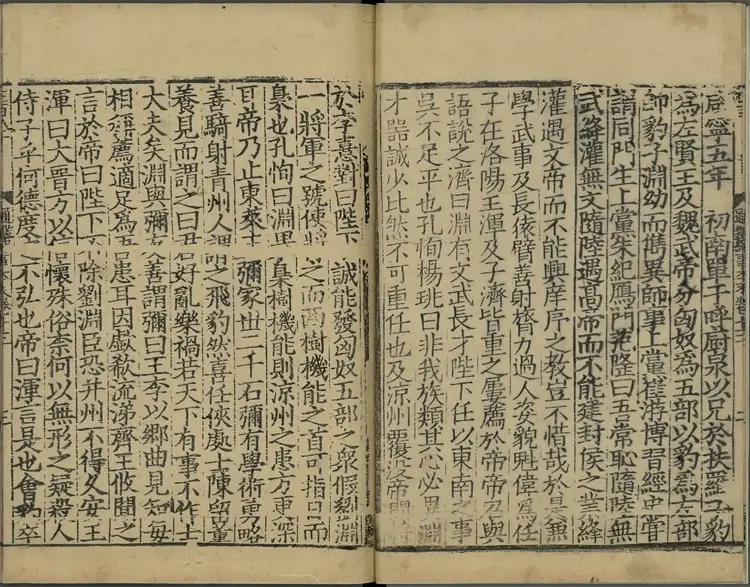 咸寧五年　初南單于呼廚泉以兄於扶羅子豹
為左賢王及魏武帝分匈奴為五部以豹為左部
帥豹子淵幼而雋異師事上黨崔游博習經史嘗
謂同門生上黨朱紀鴈門范隆曰吾常恥隨陸無
武絳灌無文隨陸遇高帝而不能建封侯之業絳
灌遇文帝而不能興庠序之教豈不惜哉於是兼
學武事及長猿臂善射膂力過人姿貌魁偉為任
子在洛陽王渾及子濟皆重之屢薦於帝帝召與
語說之濟曰淵有文武長才陛下任以東南之事
吳不足平也孔恂楊珧曰非我族類其心必異淵
才器誠少比然不可重任也及涼州覆沒帝問將
於李憙對曰陛下誠能發匈奴五部之衆假劉淵
一將軍之號使將之而西樹機能之首可指日而
梟也孔恂曰淵果梟樹機能則涼州之患方更深
耳帝乃止東萊王彌家世二千石彌有學術勇略
善騎射青州人謂之飛豹然善任俠處士陳留董
養見而謂之曰君好亂樂禍若天下有事不作士
大夫矣淵與彌友善謂彌曰王李以鄉曲見知每
相稱薦適足為吾患耳因歔欷流涕齊王攸聞之
言於帝曰陛下不除劉淵臣恐并州不得久安王
渾曰大晉方以信懷殊俗奈何以無形之疑殺人
侍子乎何德度之不弘也帝曰渾言是也會豹卒